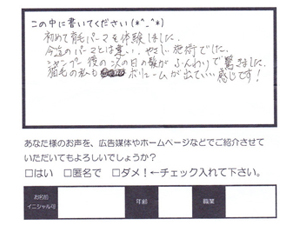 この中に書いてください(*^_^*)
初めて育毛パーマを体験しました。
今迄のパーマとは違い、やさしい施術でした。
シャンプー後の次の日の髪がふんわりで驚きました。
猫毛の私も ボリュームが出ていい感じです!
あなた様のお声を、広告媒体やホームページなどでご紹介させて
いただいてもよろしいでしょうか?
□はい □匿名で □ダメ!←チェック入れて下さい。
お名前 イニシャル可 年齢 職業